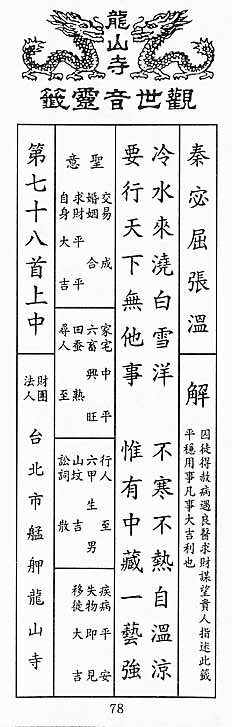 龍山寺
觀世音靈籤
秦宓屈張溫
解
囚徒得赦病遇良醫求財謀望貴人指述此籤
平穩用事凡事大吉利也
冷水來澆白雪洋 不寒不熱自溫涼
要行天下無他事 惟有中藏一藝強
聖意
交易 成
婚姻 合
求財 平
自身 大吉
家宅 中平
六畜 興旺
田蚕 熟
尋人 至
行人 至
六甲 生男
山坟 吉
訟詞 散
疾病 平安
失物 即見
移徙 大吉
第七十八首上中
財團法人 台北市艋舺龍山寺
78